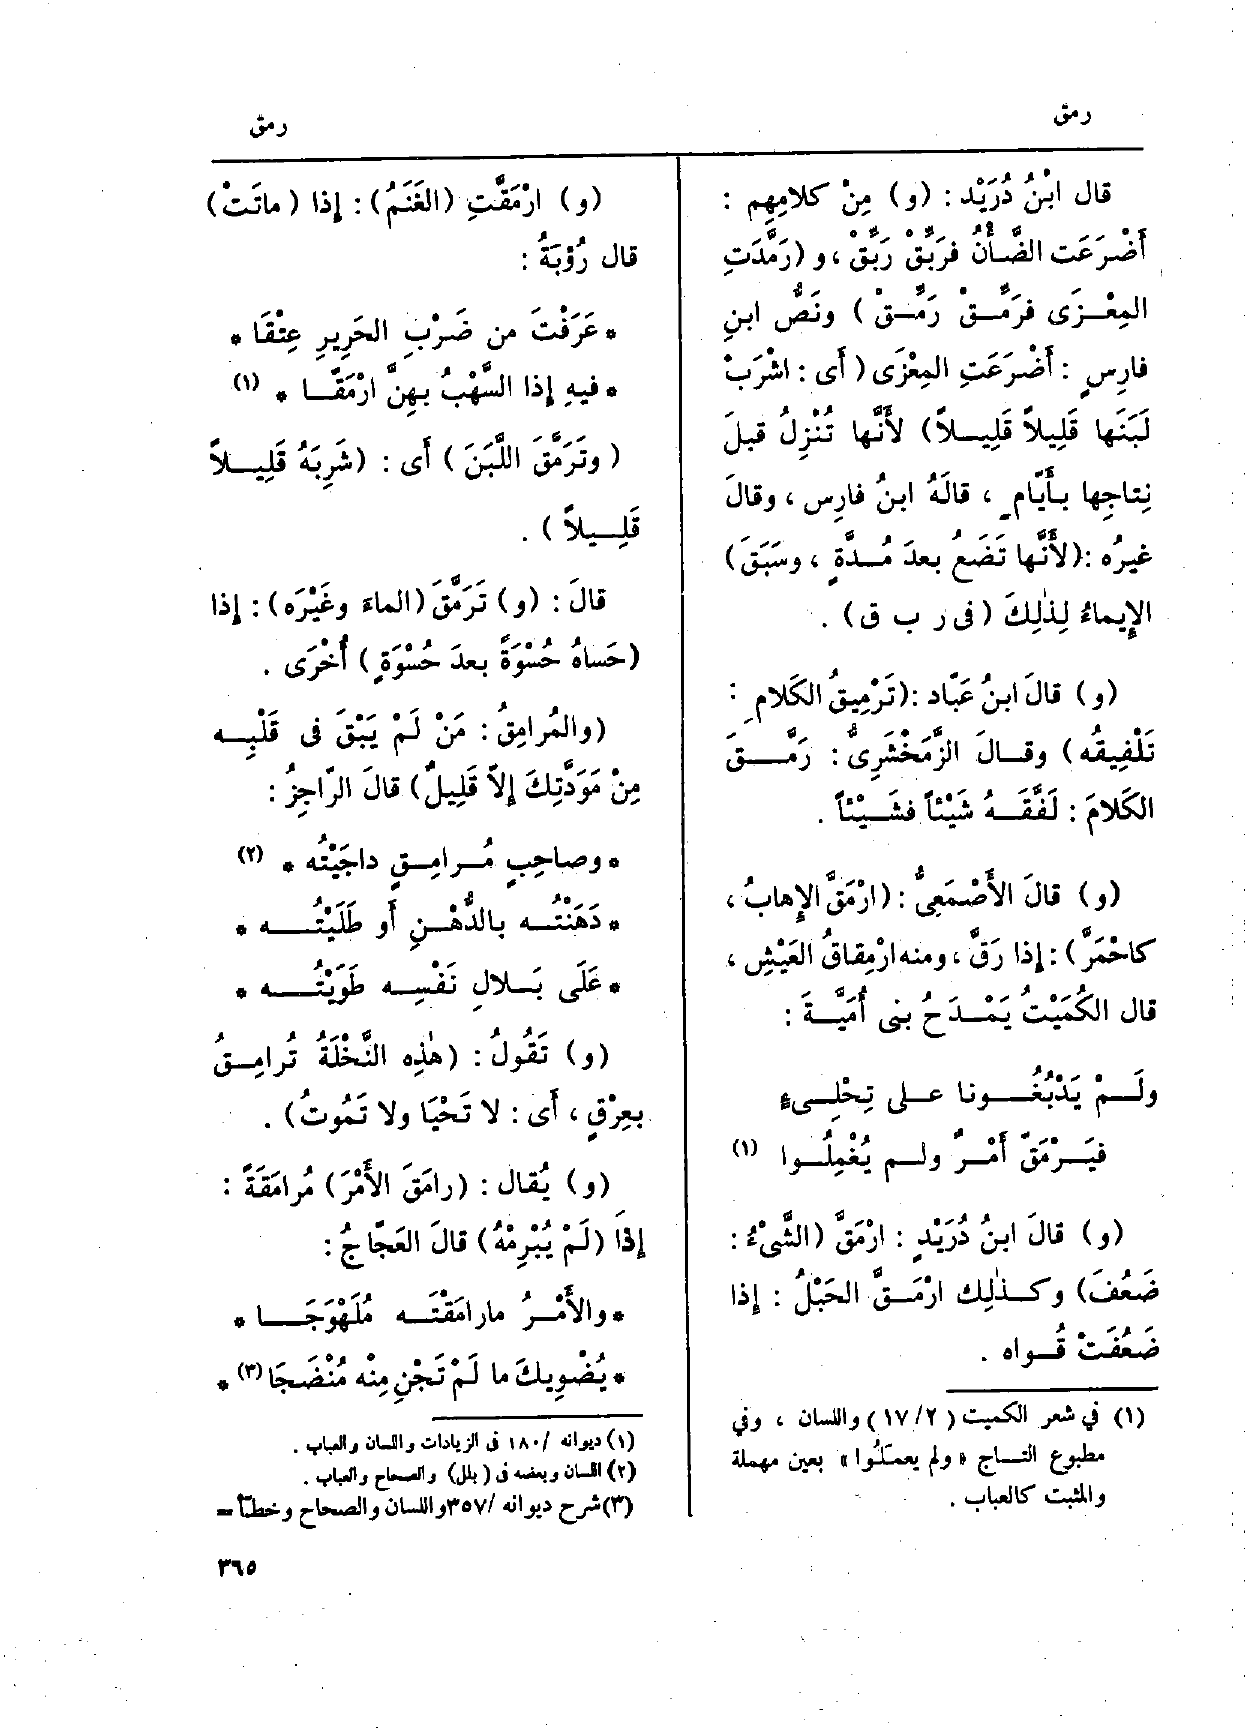 رمق
قال ابْنُ دُرَيْد : (و) مِنْ كلامِهِم :
أَضْرَعَت الضَّأْنُ فرَبِّقْ رَبِّقْ ، و (رَمَّدَتِ
المِعْزَى فرَمِّقْ رَمِّقْ ) ونَصُّ ابنِ
فارِسٍ : أَضْرَعَتِ المِعْزَى (أى : اشْرَبْ
لَبَنَها قَلِيلاً قَلِيلاً) لأَنَّها تُنْزِلُ قبلَ
نِتاجِها بأَيّامٍ ، قالَهُ ابنُ فارِس ، وقالَ
غيرُه :(لأَنَّها تَضَعُ بعدَ مُدَّةٍ ، وسَبَقَ)
الإِيماءُ لِذٰلِكَ (فى ر ب ق) .
(و) قالَ ابنُ عَبّاد :(تَرْمِيقُ الكَلامِ :
تَلْفِيقُه) وقالَ الزَّمَخْشَرِىُّ : رَمَّقَ
الكَلامَ : لَفَّقَهُ شَيْئاً فشَيْئاً .
(و) قالَ الأَصْمَعِىُّ :(ارْمَقَّ الإِهابُ ،
كاحْمَرَّ) : إذا رَقَّ ، ومنه ارْمِقاقُ العَيْشِ ،
قال الكُمَيْتُ يَمْدَحُ بنى أُمَيَّةَ :
ولَمْ يَدْبُغُونا على تِحْلِىءٍ
فيَرْمَقَّ أَمْرٌ ولم يُغْمِلُوا (١)
(و) قالَ ابنُ دُرَيْدٍ : ارْمَقَّ (الشَّىْءُ :
ضَعُفَ) وكذٰلِك ارْمَقَّ الحَبْلُ : إذا
ضَعُفَتْ قُواه .
(١) في شعر الكميت (٢/١٧) واللسان ، وفي
مطبوع التاج «ولم يعملوا» بعين مهملة
والمثبت كالعباب .
رمق
(و) ارْمَقَّتِ (الغَنَمُ) : إذا (ماتَتْ)
قال رُؤْبَةُ :
* عَرَفْتَ من ضَرْبِ الحَرِيرِ عِتْقَا *
* فيهِ إذا السَّهْبُ بهِنَّ ارْمَقَّا * (١)
(وتَرَمَّقَ اللَّبَنَ) أَى : (شَرِبَهُ قَلِيلاً
قَلِيلاً) .
قالَ : (و) تَرَمَّقَ (الماءَ وغَيْرَه) : إذا
(حَساهُ حُسْوَةً بعدَ حُسْوَةٍ) أُخْرَى .
(والمُرامِقُ : مَنْ لَمْ يَبْقَ فى قَلْبِه
مِنْ مَوَدَّتِكَ إلاّ قَلِيلٌ) قالَ الرّاجِزُ :
* وصاحِبٍ مُرامِقٍ داجَيْتُه * (٢)
* دَهَنْتُه بالدُّهْنِ أو طَلَيْتُه *
* عَلَى بَلالِ نَفْسِه طَوَيْتُه *
(و) تَقُولُ : (هٰذِه النَّخْلَةُ تُرامِقُ
بعِرْقٍ ، أَى : لا تَحْيَا ولا تَمُوتُ) .
(و) يُقال : (رامَقَ الأَمْرَ) مُرامَقَةً :
إذَا (لَمْ يُبْرِمْهُ) قالَ العَجّاجُ :
* والأَمْرُ مارامَقْتَه مُلَهْوَجَا *
* يُضْوِيكَ ما لَمْ تَجْنِ مِنْه مُنْضَجَا (٣) *
(١) ديوانه /١٨٠ فى الزيادات واللسان والعباب .
(٢) اللسان وبعضه فى (بلل) والصحاح والعباب .
(٣) شرح ديوانه /٣٥٧ واللسان والصحاح وخطأ =
٣٦٥